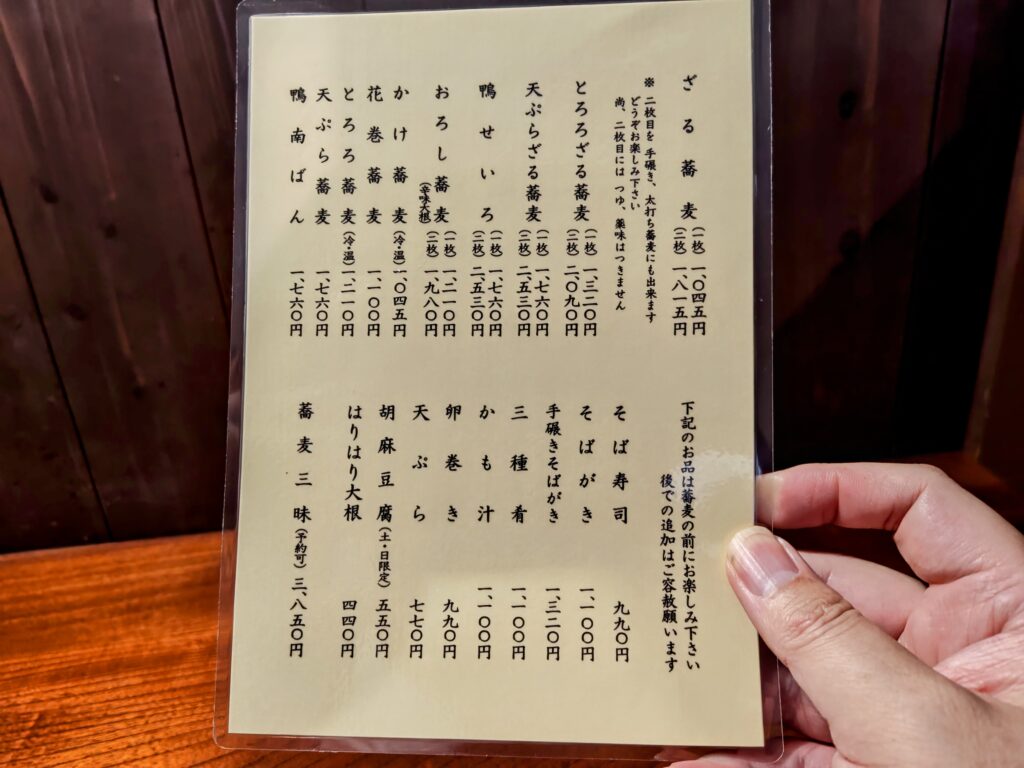 ざる蕎麦 (一枚) 一、〇四五円
(二枚) 一、八一五円
※ 二枚目を 手碾き、太打ち蕎麦にも出来ます
どうぞお楽しみ下さい
尚、二枚目には つゆ、薬味はつきません
とろろざる蕎麦 (一枚) 一、三二〇円
(二枚) 二、〇九〇円
天ぷらざる蕎麦 (一枚) 一、七六〇円
(二枚) 二、五三〇円
鴨せいろ (一枚) 一、七六〇円
(二枚) 二、五三〇円
おろし蕎麦 (一枚) 一、二一〇円
(辛味大根) (二枚) 一、九八〇円
かけ蕎麦 (冷・温) 一、〇四五円
花巻蕎麦 一、一〇〇円
とろろ蕎麦 (冷・温) 一、二一〇円
天ぷら蕎麦 一、七六〇円
鴨南ばん 一、七六〇円
下記のお品は蕎麦の前にお楽しみ下さい
後での追加はご容赦願います
そば寿司 九九〇円
そばがき 一、一〇〇円
手碾きそばがき 一、三二〇円
三種肴 一、一〇〇円
かも汁 一、一〇〇円
卵巻き 九九〇円
天ぷら 七七〇円
胡麻豆腐 (土・日限定) 五五〇円
はりはり大根 四四〇円
蕎麦三昧 (予約可) 三、八五〇円